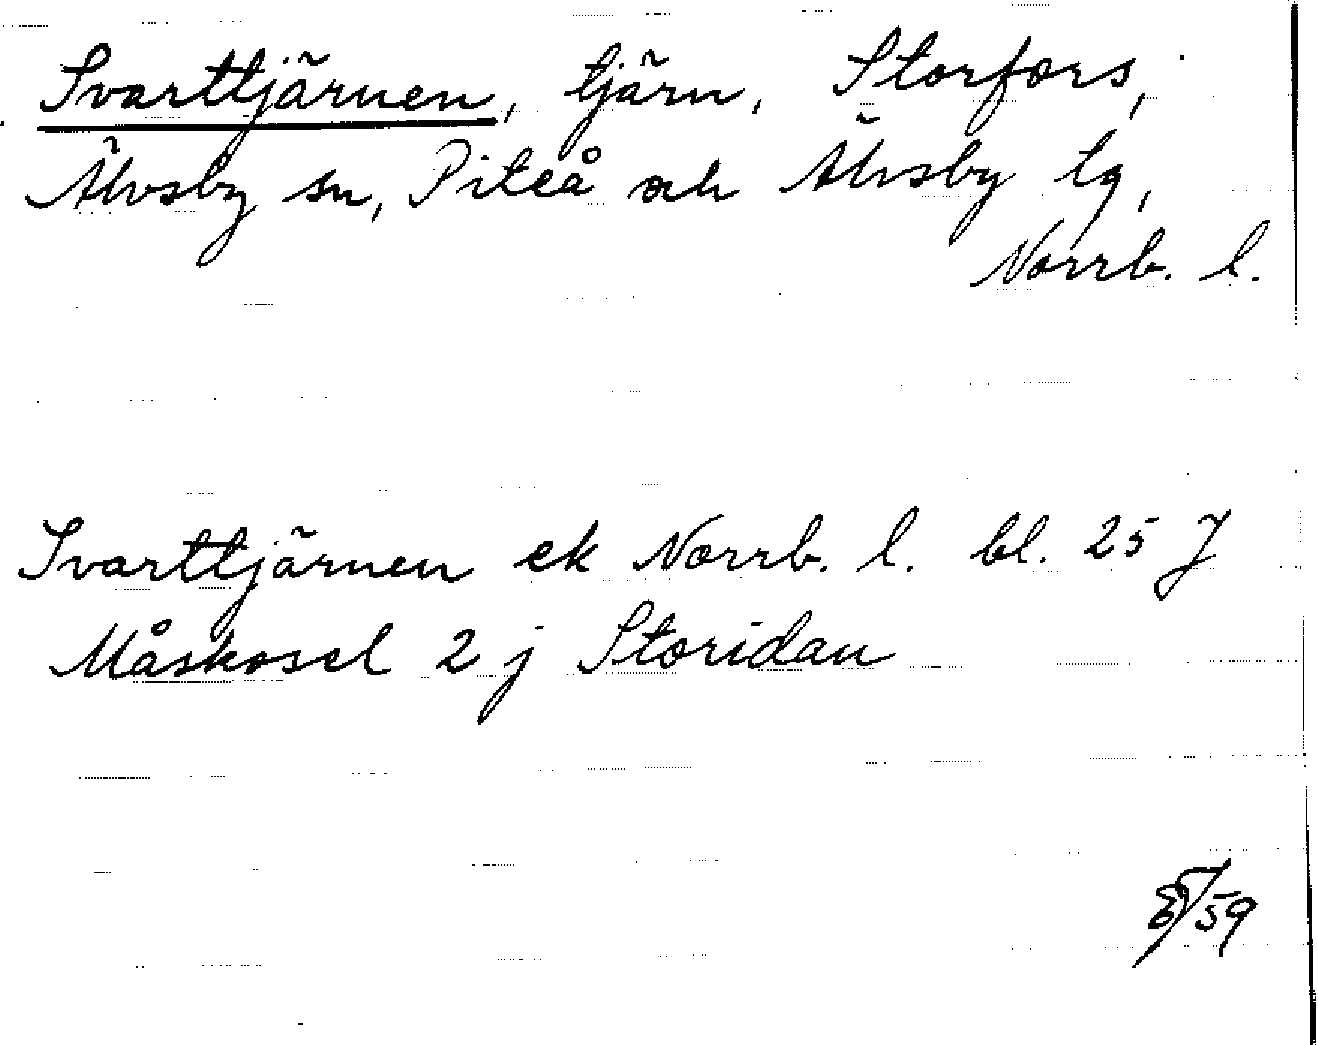 Svarttjärnen, tjärn, Storfors,
Älvsby sn, Piteå och Älvsby tg,
Norrb. l.
Svarttjärnen ek Norrb. l. bl. 25 J
Måskosel 2 j Storidan
/59